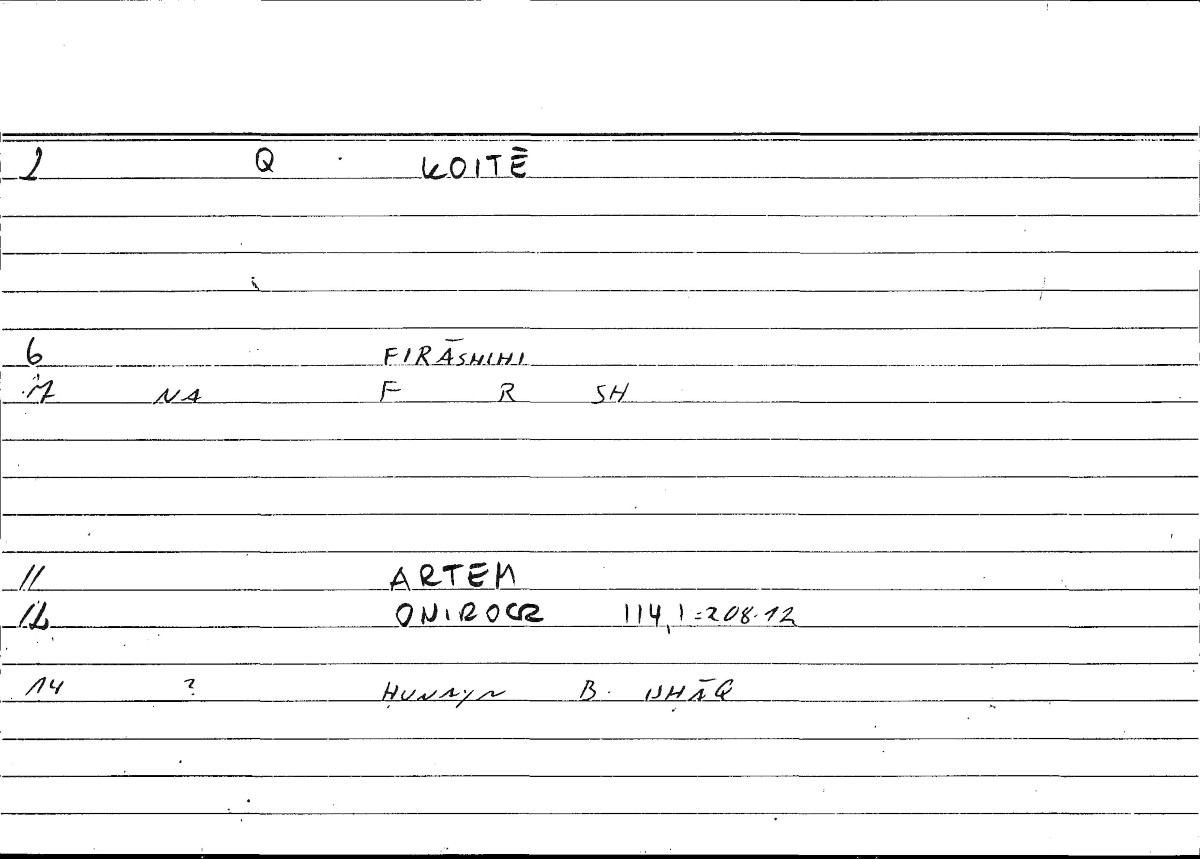 2 Q KOITĒ
6 FIRĀSHIHI
7 NA F R SH
11 ARTEM
12 ONIROCR 114,1=208.12
14 ? ḤUNAYN B. ISḤĀQ